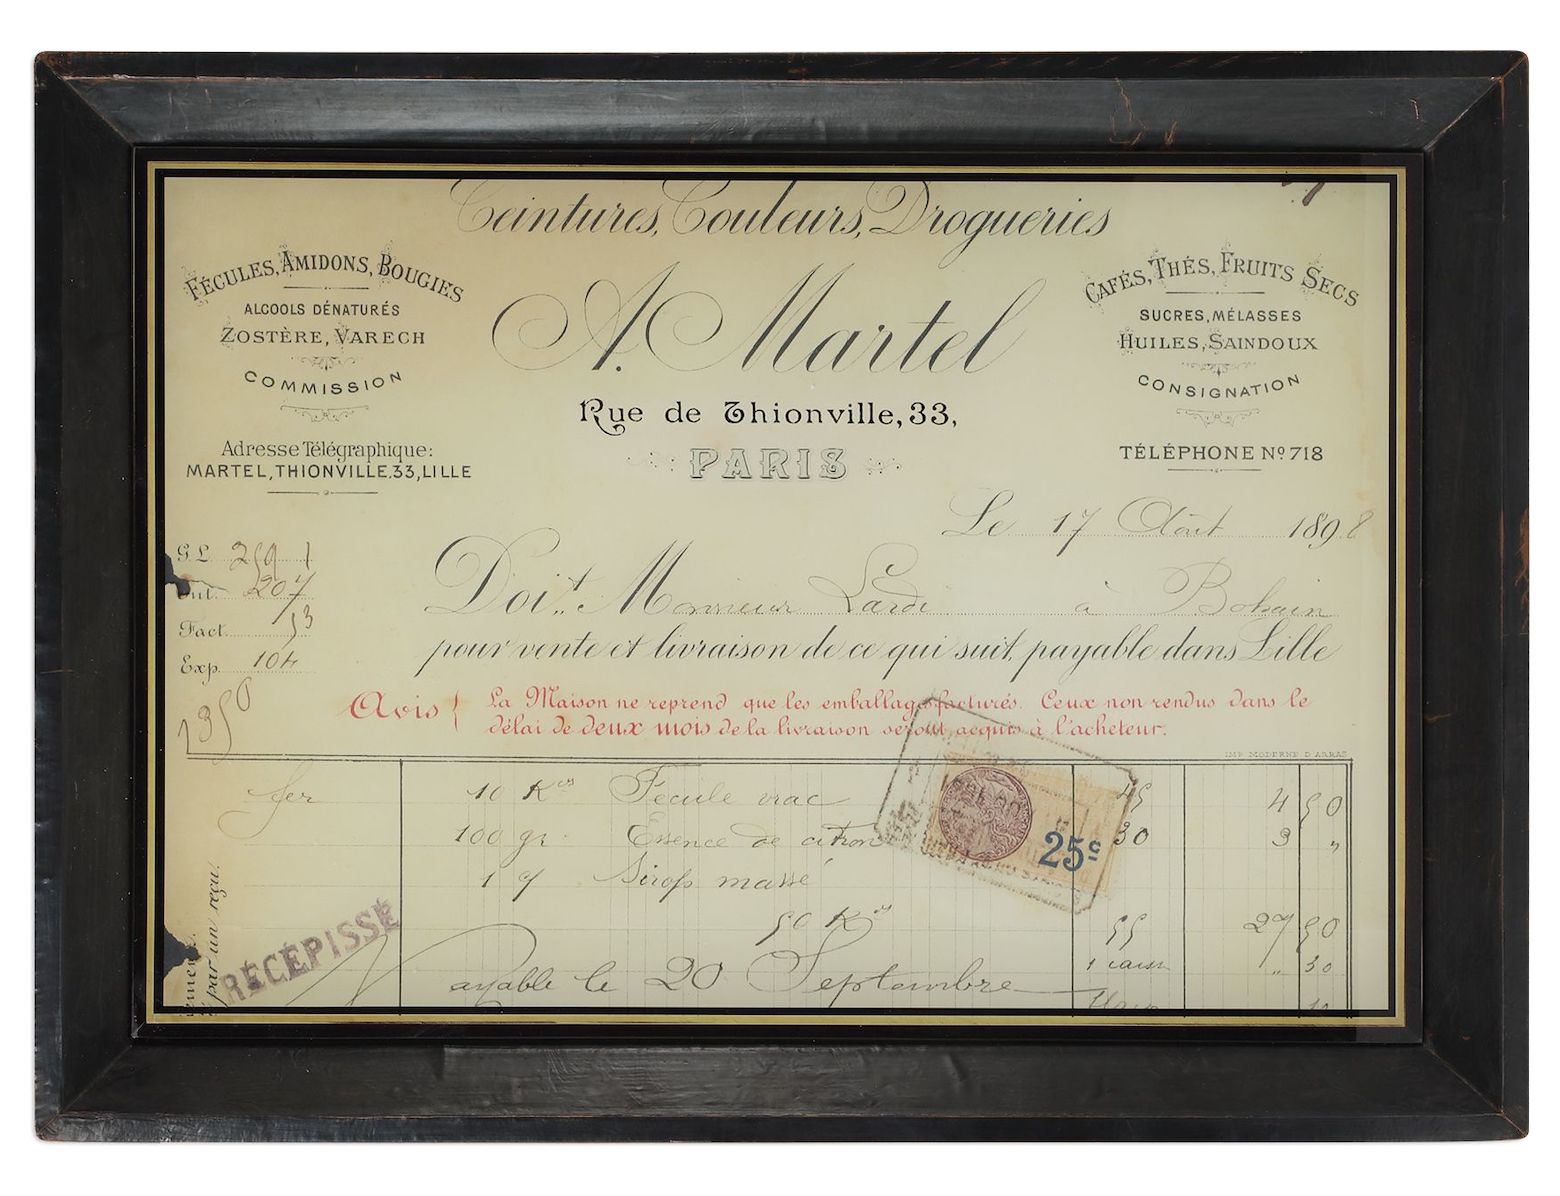 Teintures, Couleurs, Drogueries
FÉCULES, AMIDONS, BOUGIES
ALCOOLS DÉNATURÉS
ZOSTÈRE, VARECH
COMMISSION
Adresse Télégraphique:
MARTEL, THIONVILLE.33, LILLE
A. Martel
Rue de Thionville, 33,
PARIS
CAFÉS, THÉS, FRUITS SECS
SUCRES, MÉLASSES
HUILES, SAINDOUX
CONSIGNATION
TÉLÉPHONE Nº 718
Le 17 Août 1898
G.L. 259 1
207
Fact. 53
Exp. 104
1350
Doit Monsieur Larde à Bohain
pour vente et livraison de ce qui suit, payable dans Lille
Avis { La Maison ne reprend que les emballages facturés. Ceux non rendus dans le
délai de deux mois de la livraison seront acquis à l'acheteur.
IMP. MODERNE D'ARRAS
fer 10 Kos Fécule vrac 45 4 50
100 gr. Essence de citron 30 3 "
1 Sirop massé
50 Kos 55 27 50
1 caisse " 30
Payable le 20 Septembre
25c
RÉCÉPISSÉ
par un reçu.